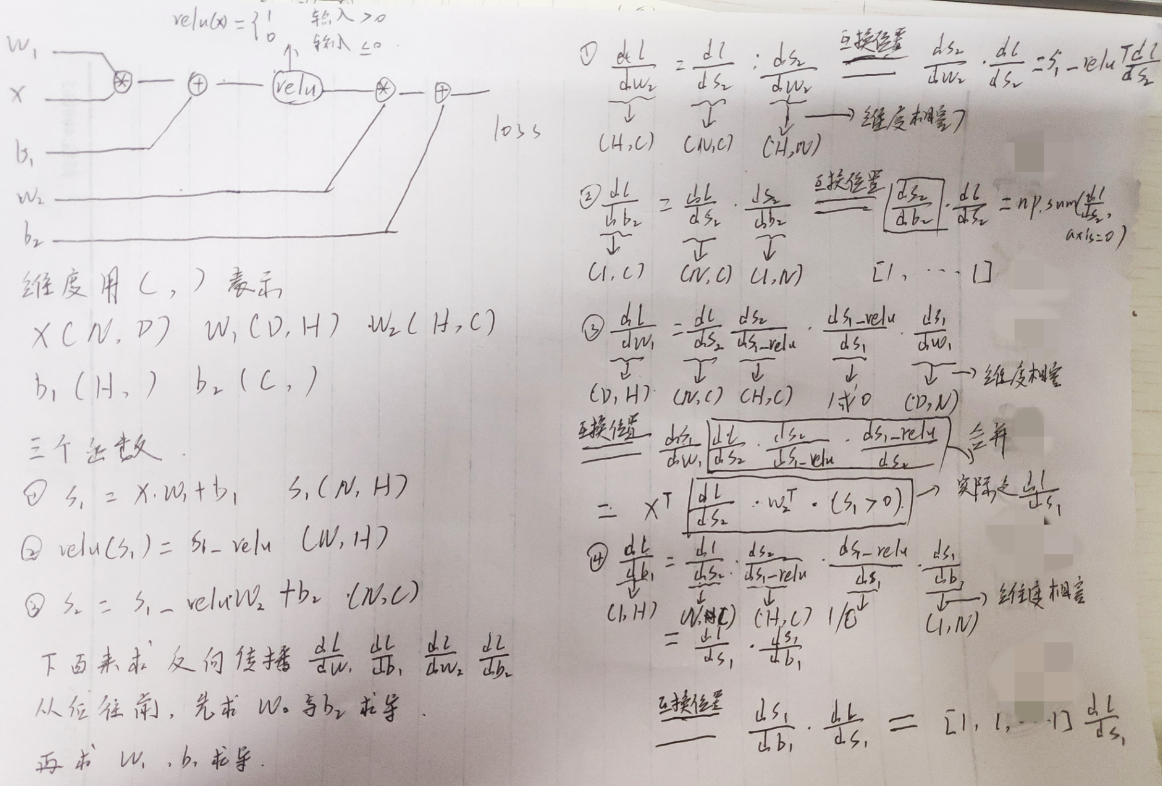 relu(x) = { 1 输入 > 0
0 输入 ≤ 0
W₁
X
* + relu * +
b₁
W₂
b₂
loss
维度用 ( , ) 表示
X(N, D) W₁(D, H) W₂(H, C)
b₁(H, ) b₂(C, )
三个函数.
① s₁ = X·W₁+b₁ s₁(N, H)
② relu(s₁) = s₁_relu (N, H)
③ s₂ = s₁_relu W₂ + b₂ (N, C)
下面来求反向传播 dl/dw₁ dl/db₁ dl/dw₂ dl/db₂
从后往前, 先求 W₂与b₂求导.
再求 W₁, b₁求导.
① dl/dw₂ = dl/ds₂ · ds₂/dw₂ 互换位置 ds₂/dw₂ · dl/ds₂ = s₁_reluᵀ dl/ds₂
(H,C) (N,C) (H,N) → 维度相容
② dl/db₂ = dl/ds₂ · ds₂/db₂ 互换位置 ds₂/db₂ · dl/ds₂ = np.sum(dl/ds₂, axis=0)
(1,C) (N,C) (1,N) [1, ⋯ 1]
③ dl/dw₁ = dl/ds₂ ds₂/ds₁_relu · ds₁_relu/ds₁ · ds₁/dw₁
→ 维度相容
(D,H) (N,C) (H,C) 1或0 (D,N)
互换位置 ds₁/dw₁ dl/ds₂ · ds₂/ds₁_relu · ds₁_relu/ds₂ 合并
= Xᵀ dl/ds₂ · W₂ᵀ · (s₁ > 0) → 实际是 dl/ds₁
④ dl/db₁ = dl/ds₂ · ds₂/ds₁_relu · ds₁_relu/ds₁ · ds₁/db₁
→ 维度相容
(1,H) (H,C) 1/0 (1,N)
= dl/ds₁ · ds₁/db₁
互换位置 ds₁/db₁ · dl/ds₁ = [1, 1, ⋯ 1] dl/ds₁